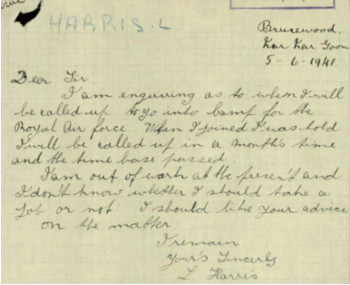 HARRIS. L
Brucewood.
Kar Kar Goon
5-6-1941.
Dear Sir
I am enquiring as to when I will
be called up to go into camp for the
Royal Air force. When I joined I was told
I will be called up in a month's time
and the time base passed
I am out of work at the present and
I don't know whether I should take a
job or not. I should like your advice
on the matter
I remain
Your's Sincerly
L Harris